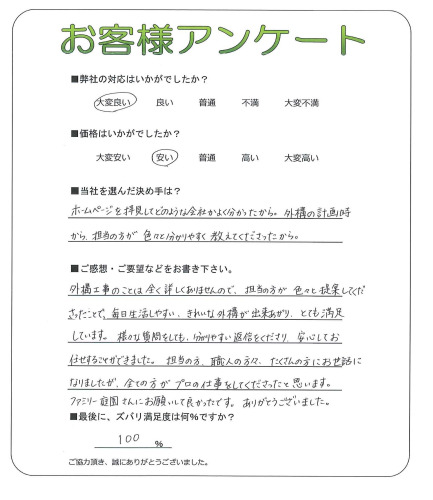 お客様アンケート
■弊社の対応はいかがでしたか？
大変良い 良い 普通 不満 大変不満
■価格はいかがでしたか？
大変安い 安い 普通 高い 大変高い
■当社を選んだ決め手は？
ホームページを拝見してどのような会社かよく分かったから。外構の計画時
から、担当の方が色々と分かりやすく教えてくださったから。
■ご感想・ご要望などをお書き下さい。
外構工事のことは全く詳しくありませんので、担当の方が色々と提案してくだ
さったことで、毎日生活しやすい、きれいな外構が出来あがり、とても満足
しています。様々な質問をしても、分かりやすい返信をくださり、安心してお
任せすることができました。担当の方、職人の方々、たくさんの方にお世話に
なりましたが、全ての方がプロの仕事をしてくださったと思います。
ファミリー庭園さんにお願いして良かったです。ありがとうございました。
■最後に、ズバリ満足度は何％ですか？
100 %
ご協力頂き、誠にありがとうございました。